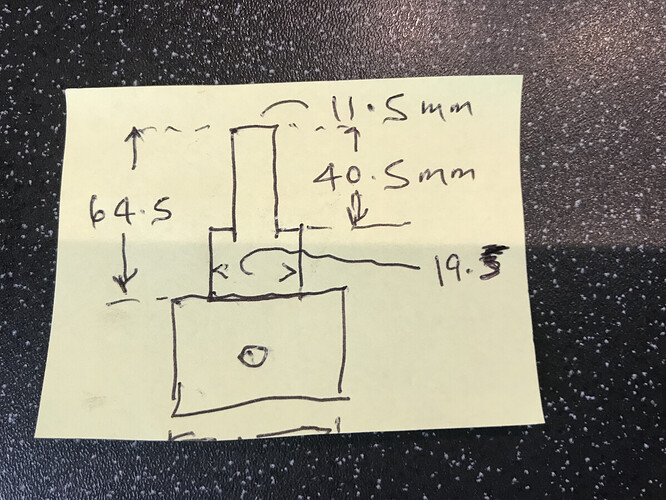 11.5mm
40.5mm
64.5
19.5